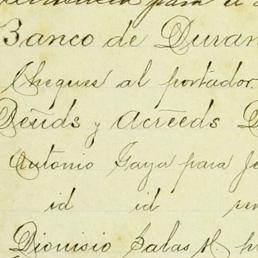 para el
Banco de Duran
Cheques al portador.
Deuds y Acreeds
Antonio Gaya para
id id
Dionisio Salas M.